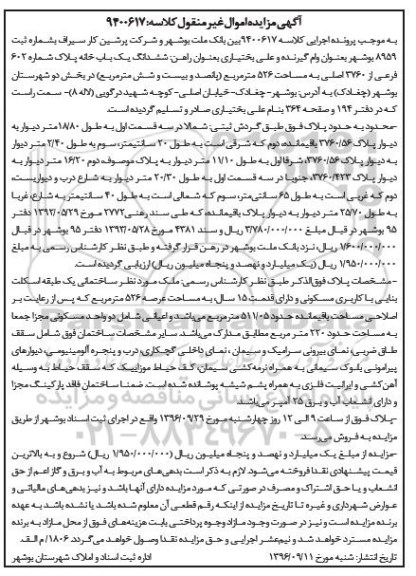 آگهی مزایده اموال غیر منقول کلاسه: ۹۴۰۰۶۱۷
به موجب پرونده اجرایی کلاسه ۹۴۰۰۶۱۷ بین بانک ملت بوشهر و شرکت پرشین کار سیراف بشماره ثبت
۸۹۵۹ بوشهر بعنوان وام گیرنده و علی بختیاری بعنوان راهن: ششدانگ یک باب خانه پلاک شماره ۶۰۲
فرعی از ۳۷۶۰ اصلی به مساحت ۵۲۶ مترمربع (پانصد و بیست و شش مترمربع) در بخش دو شهرستان
بوشهر (چغادک) به آدرس: بوشهر- چغادک- خیابان اصلی- کوچه شهید درگویی (لاله ۸)- سمت راست
که در دفتر ۱۹۴ و صفحه ۳۶۴ بنام علی بختیاری صادر و تسلیم گردیده است.
-محدود به حدود پلاک فوق طبق گردش ثبتی: شمالا در سه قسمت اول به طول ۱۸/۸۰ متر دیوار به
دیوار پلاک ۳۷۶۰/۵۶ باقیمانده، دوم که شرقی است به طول ۲۰ سانتیمتر، سوم به طول ۲/۴۰ متر دیوار
به دیوار پلاک ۳۷۶۰/۵۶، شرقا اول به طول ۱۱/۱۰ متر دیوار به پلاک موصوف، دوم ۱۶/۲۰ متر دیوار به
دیوار پلاک ۳۷۶۰/۴۲۳، جنوبا در سه قسمت اول به طول ۲۰/۳۰ متر دیوار به شارع درب و دیواریست،
دوم که غربی است به طول ۶۵ سانتی‌متر، سوم که شمالی است به طول ۴۰ سانتیمتر به شارع، غربا
به طول ۲۵/۷۰ متر دیوار به دیوار پلاک باقیمانده، که طی سند رهنی ۲۷۷۲ مورخ ۱۳۹۲/۰۵/۲۹ دفتر
۹۵ بوشهر در قبال مبلغ ۳/۷۸۰/۰۰۰/۰۰۰ ریال و سند ۴۳۸۱ مورخ ۱۳۹۳/۰۵/۲۸ دفتر ۹۵ بوشهر در قبال
۷/۶۰۰/۰۰۰/۰۰۰ ریال، نزد بانک ملت بوشهر در رهن قرار گرفته و طبق نظر کارشناس رسمی به مبلغ
۱/۹۵۰/۰۰۰/۰۰۰ ریال (یک میلیارد و نهصد و پنجاه میلیون ریال) ارزیابی گردیده است.
- مشخصات پلاک فوق‌الذکر طبق نظر کارشناس رسمی: ملک مورد نظر ساختمانی یک طبقه اسکلت
بنایی با کاربری مسکونی و دارای قدمت ۱۵ سال، به مساحت عرصه ۵۲۶ مترمربع که پس از رعایت بر
اصلاحی مساحت باقیمانده حدود ۵۱۱/۰۵ مترمربع می‌باشد و اعیانی شامل دو واحد مسکونی مجزا جمعا
به مساحت حدود ۲۲۰ متر مربع مطابق مدارک می‌باشد. سایر مشخصات ساختمان فوق شامل سقف
طاق ضربی، نمای بیرونی سرامیک و سیمان، نمای داخلی گچکاری، درب و پنجره آلومینیومی، دیوارهای
پیرامونی بلوک سیمانی به همراه نرمه‌کشی سیمان، کف حیاط موزاییک که سقف حیاط به وسیله
آهن‌کشی و ایرانیت فلزی به همراه پشم شیشه پوشانده شده است. ضمنا ساختمان فاقد پارکینگ مجزا
و دارای انشعاب آب و برق ۲۵ آمپر می‌باشد.
-پلاک فوق از ساعت ۹ الی ۱۲ روز چهارشنبه مورخ ۱۳۹۶/۰۹/۲۹ واقع در اجرای ثبت اسناد بوشهر از طریق
مزایده به فروش می‌رسد.
-مزایده از مبلغ یک میلیارد و نهصد و پنجاه میلیون ریال (۱/۹۵۰/۰۰۰/۰۰۰ ریال) شروع و به بالاترین
قیمت پیشنهادی نقدا فروخته می‌شود. لازم به ذکر است بدهی‌های مربوط به آب و برق و گاز اعم از حق
انشعاب و یا حق اشتراک و مصرف در صورتی که مورد مزایده دارای آنها باشد و نیز بدهی‌های مالیاتی و
عوارض شهرداری و غیره تا تاریخ مزایده از اینکه رقم قطعی آن معلوم شده باشد یا نشده باشد به عهده
برنده مزایده است و نیز در صورت وجود مازاد وجوه پرداختی بابت هزینه‌های فوق از محل مازاد به برنده
مزایده مسترد خواهد شد و نیم‌عشر اجرایی و حق مزایده نقدا وصول خواهد می‌گردد. ۱۸۰۶/م الف
تاریخ انتشار: شنبه مورخ ۱۳۹۶/۰۹/۱۱ اداره ثبت اسناد و املاک شهرستان بوشهر
۰۲۱-۸۸۳۴۹۶۷۰